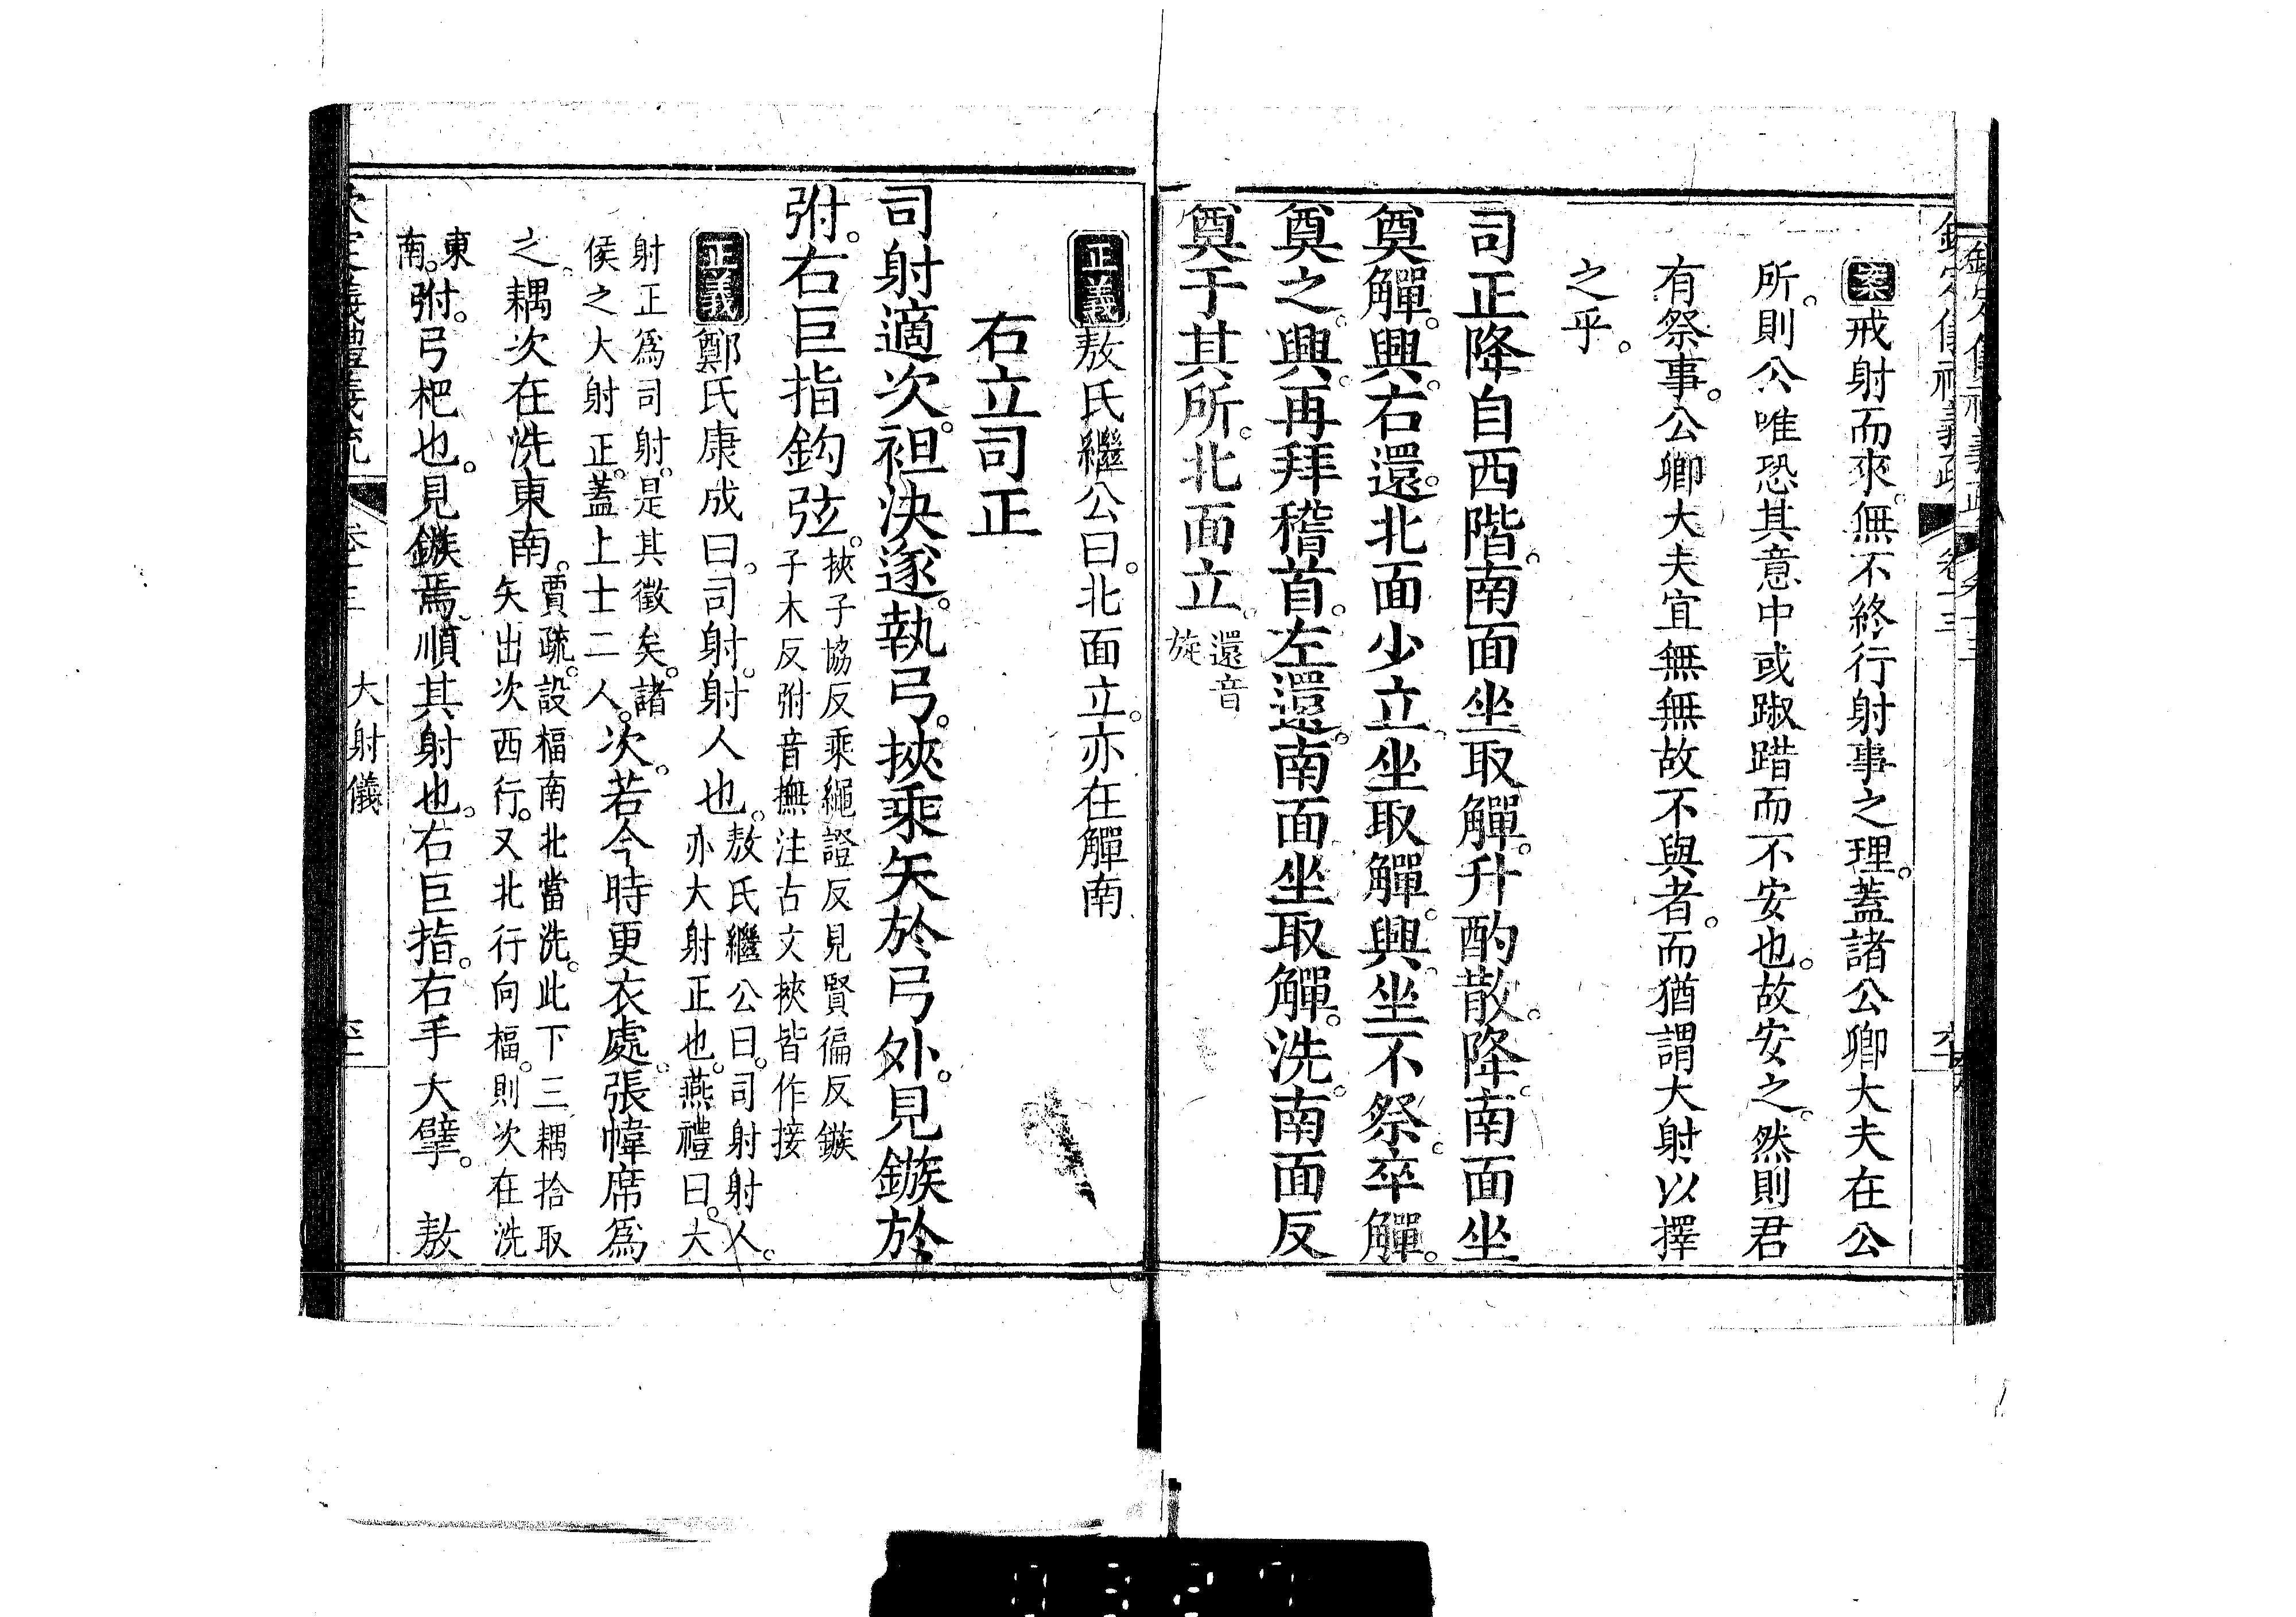 欽定儀禮義疏 卷十三
案戒射而來。無不終行射事之理。蓋諸公卿大夫在公
所。則公唯恐其意中或踧踖而不安也。故安之。然則君
有祭事。公卿大夫宜無無故不與者。而猶謂大射以擇
之乎。
司正降自西階。南面坐取觶。升酌散。降。南面坐
奠觶。興。右還。北面少立。坐取觶。興。坐。不祭。卒觶。
奠之。興。再拜稽首。左還。南面坐取觶。洗。南面反
奠于其所。北面立。還音
旋
正義敖氏繼公曰。北面立。亦在觶南。
右立司正
司射適次。袒決遂。執弓。挾乘矢於弓外。見鏃於
弣。右巨指鉤弦。挾子協反乘繩證反見賢徧反鏃
子木反弣音撫注古文挾皆作接
正義鄭氏康成曰。司射。射人也。敖氏繼公曰。司射射人。
亦大射正也。燕禮曰。大
射正為司射。是其徵矣。諸
侯之大射正。蓋上士二人。次。若今時更衣處。張幃席為
之。耦次在洗東南。賈疏。設楅南北當洗。此下三耦拾取
矢出次西行。又北行向楅。則次在洗
東
南。弣。弓杷也。見鏃焉。順其射也。右巨指。右手大擘。 敖
卷十三 大射儀